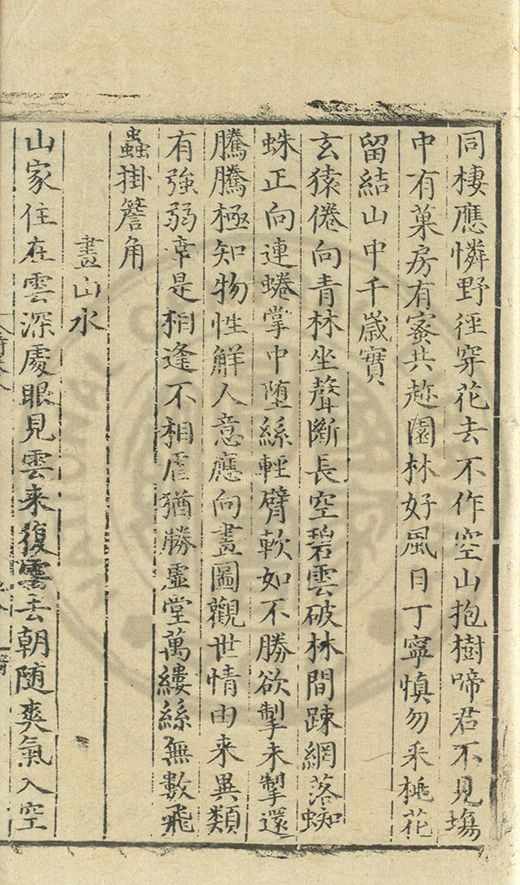 同棲應憐野徑穿花去不作空山抱樹啼君不見塲
中有菓房有蜜共趂園林好風日丁寧慎勿采桃花
留結山中千歲實
玄猿倦向青林坐聲斷長空碧雲破林間踈網落蜘
蛛正向連蜷掌中墮絲輕臂軟如不勝欲掣未掣還
騰騰極知物性鮮人意應向畫圖觀世情由来異類
有強弱幸是相逢不相虐猶勝虛堂萬縷絲無數飛
蟲掛簷角
畫山水
山家住在雲深處眼見雲来復雲去朝随爽氣入空